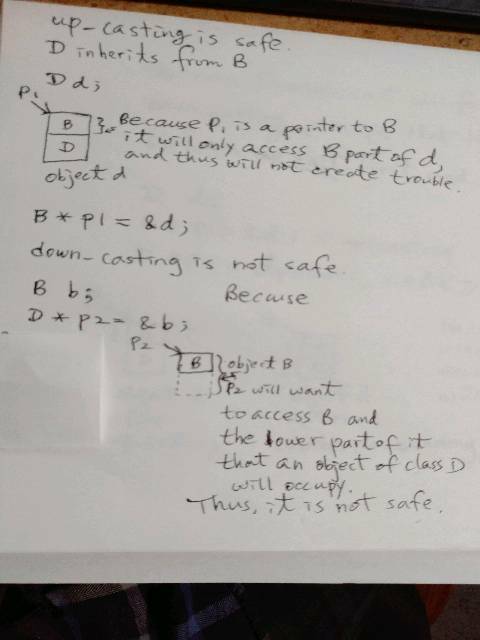 up-casting is safe.
D inherits from B
D d;
P1
B
D
} Because P1 is a pointer to B
it will only access B part of d,
and thus will not create trouble.
object d
B * p1 = &d;
down-casting is not safe.
B b; Because
D * p2 = &b;
P2
B } object B
P2 will want
to access B and
the lower part of it
that an object of class D
will occupy.
Thus, it is not safe.